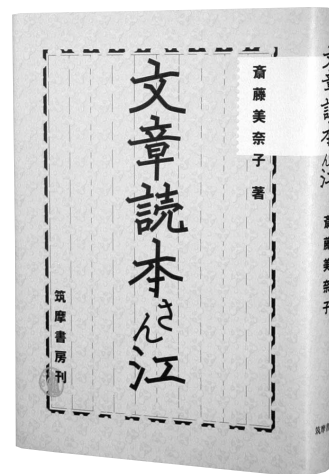 斎藤美奈子 著
文章読本さん江
筑摩書房刊
文章読本さん江
斎藤美奈子
筑摩